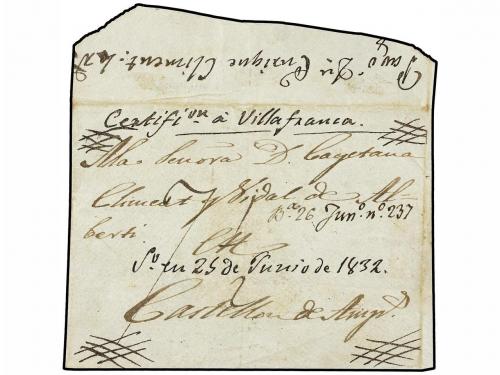 Dn. Enrique Climent.
Certifi.on à Villafranca.
A la Señora Da. Cayetana
Climent y Vidal de Al-
Ba. 26. Jun.o n.o 237
berti
So. en 25 de Junio de 1832.
Castellon de Amp.s